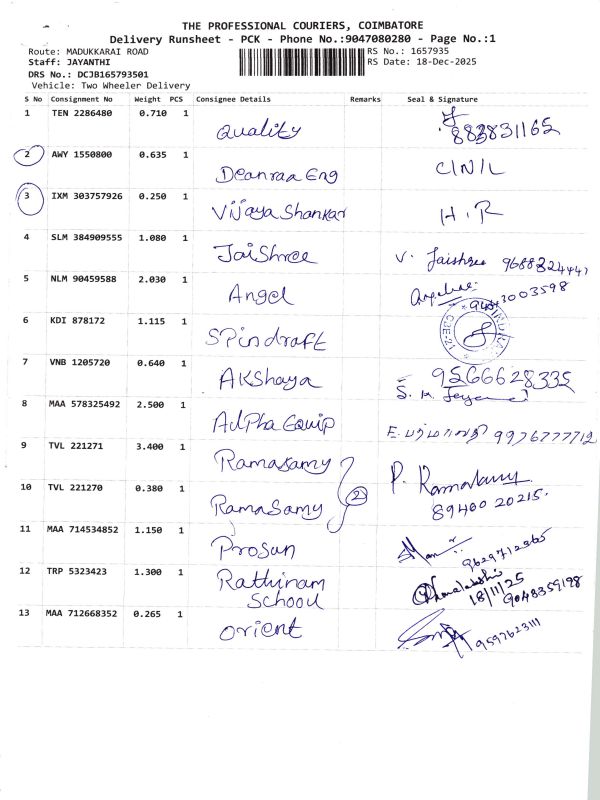 THE PROFESSIONAL COURIERS, COIMBATORE
Delivery Runsheet - PCK - Phone No.:9047080280 - Page No.:1
Route: MADUKKARAI ROAD RS No.: 1657935
Staff: JAYANTHI RS Date: 18-Dec-2025
DRS No.: DCJB165793501
Vehicle: Two Wheeler Delivery
S No Consignment No Weight PCS Consignee Details Remarks Seal & Signature
1 TEN 2286480 0.710 1 Quality 883831165
2 AWY 1550800 0.635 1 Deanraa Eng CINIL
3 IXM 303757926 0.250 1 Vijaya Shankar H.R
4 SLM 384909555 1.080 1 JaiShree V. Jaishree
5 NLM 90459588 2.030 1 Angel 9443003598
6 KDI 878172 1.115 1 Spindraft
7 VNB 1205720 0.640 1 Akshaya 9566628335
8 MAA 578325492 2.500 1 Alpha Equip 9976777712
9 TVL 221271 3.400 1 Ramasamy P. Ramasamy
10 TVL 221270 0.380 1 RamaSamy 2 89400 20215.
11 MAA 714534852 1.150 1 Prosun 9629712365
12 TRP 5323423 1.300 1 Rathinam School 18/11/25 9048359198
13 MAA 712668352 0.265 1 Orient 9597623111